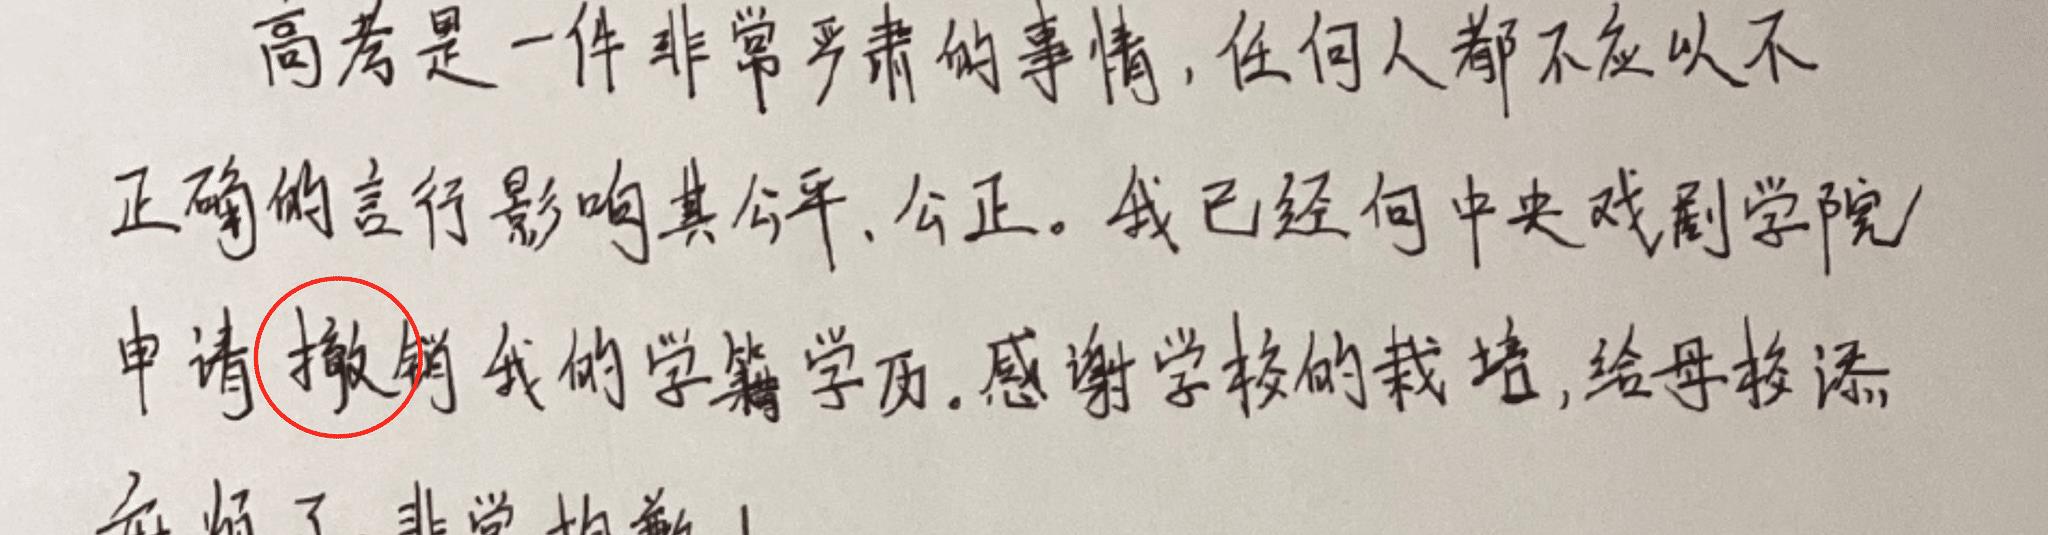 高考是一件非常严肃的事情，任何人都不应以不
正确的言行影响其公平、公正。我已经向中央戏剧学院
申请撤销我的学籍学历。感谢学校的栽培，给母校添
麻烦了，非常抱歉！